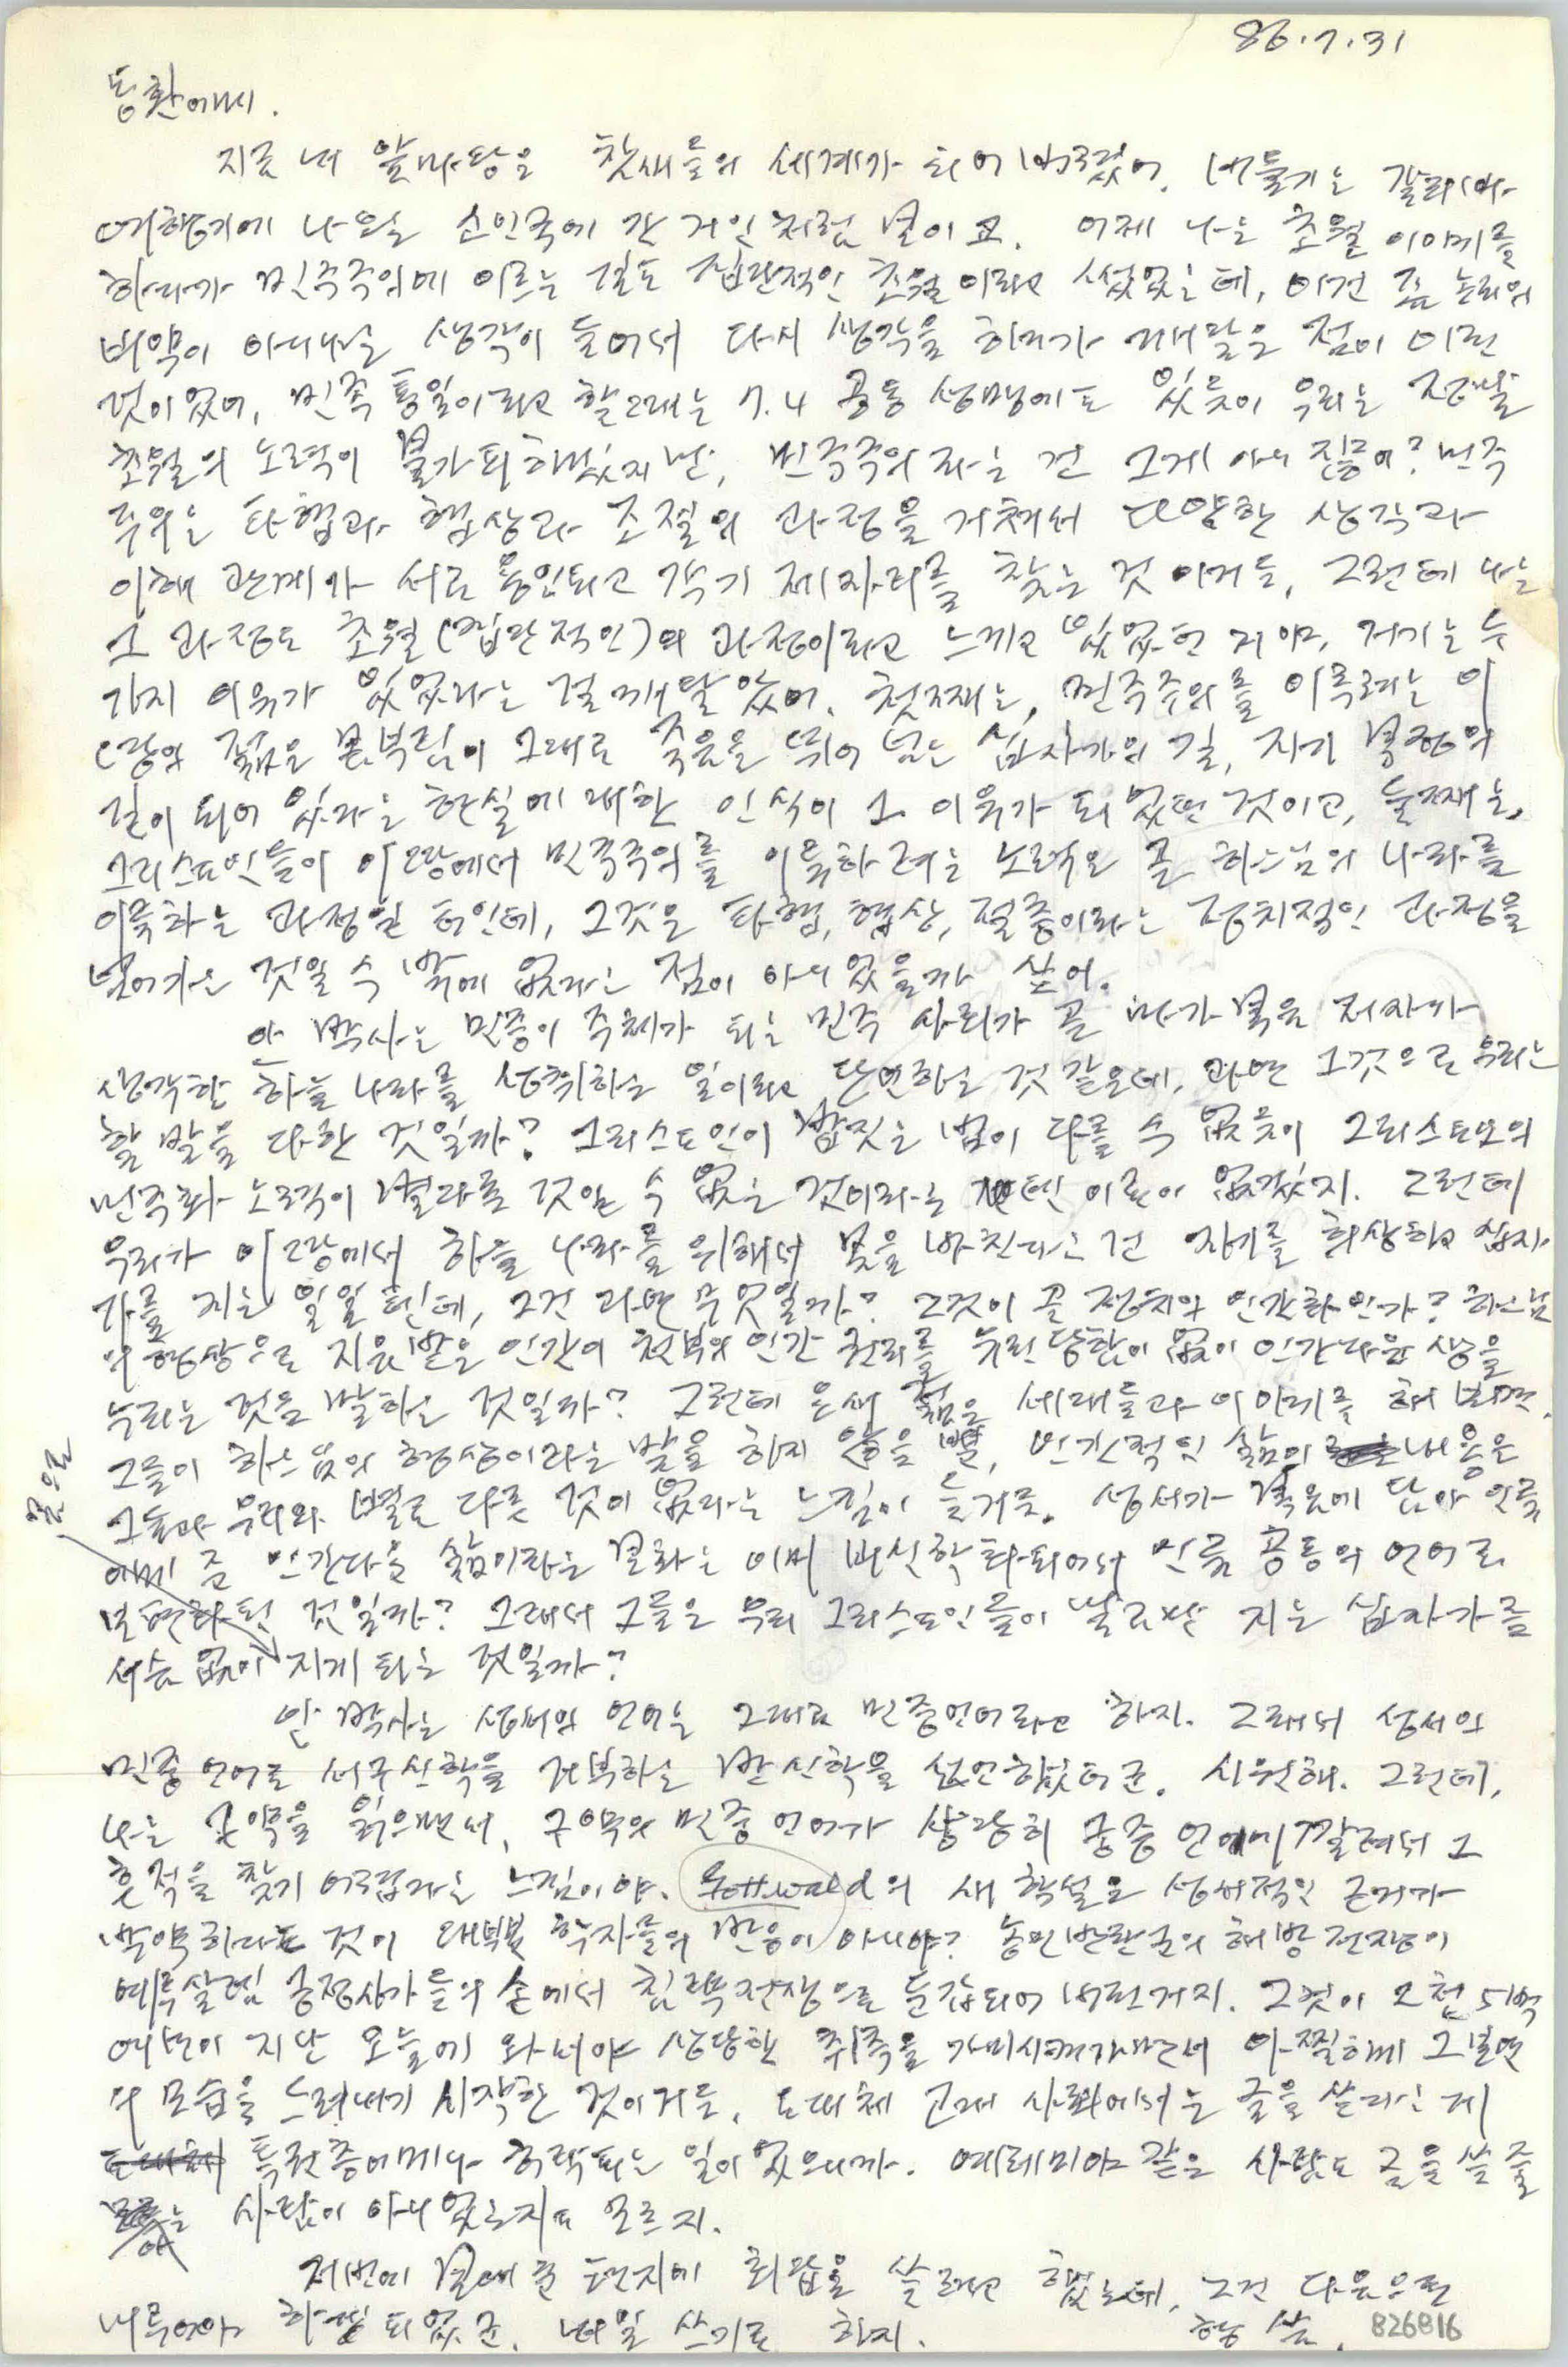 86.7.31
동환에게.
지금 내 앞마당은 참새들의 세계가 되어 버렸어. 비둘기는 갈리바
여행기에 나오는 소인국에 간 거인처럼 보이고. 어제 나는 초월 이야기를
하다가 민주주의에 이르는 길도 집단적인 초월이라고 썼었는데, 이건 좀 논리의
비약이 아니냐는 생각이 들어서 다시 생각을 하다가 깨달은 점이 이런
것이었어. 민족 통일이라고 할 때는 7.4 공동 성명에도 있듯이 우리는 정말
초월의 노력이 불가피하겠지만, 민주주의라는 건 그게 아니잖아? 민주
주의는 타협과 협상과 조절의 과정을 거쳐서 다양한 생각과
이해 관계가 서로 용인되고 각기 제자리를 찾는 것이거든. 그런데 나는
그 과정도 초월(집단적인)의 과정이라고 느끼고 있었던 거야. 거기는 두
가지 이유가 있었다는 걸 깨달았어. 첫째는, 민주주의를 이룩하려는 이
땅의 젊은 몸부림이 그대로 죽음을 뛰어 넘는 십자가의 길, 자기 부정의
길이 되어 있다는 현실에 대한 인식이 그 이유가 되었던 것이고, 둘째는,
그리스도인들이 이 땅에서 민주주의를 이룩하려는 노력은 곧 하느님의 나라를
이룩하는 과정일 터인데, 그것은 타협, 협상, 절충이라는 정치적인 과정을
넘어가는 것일 수 밖에 없다는 점이 아니었을까 싶어.
안 박사는 민중이 주체가 되는 민주 사회가 곧 마가 복음 저자가
생각한 하늘 나라를 성취하는 일이라고 단언하는 것 같은데, 과연 그것으로 우리는
할 말을 다한 것일까? 그리스도인이 밥짓는 법이 다를 수 없듯이 그리스도인의
민주화 노력이 별다른 것일 수 없는 것이라는 데엔 이론이 없겠지. 그런데
우리가 이 땅에서 하늘 나라를 위해서 몸을 바친다는 건 자기를 희생하고 십자
가를 지는 일일 텐데, 그건 과연 무엇일까? 그것이 곧 정치의 인간화인가? 하느님
의 형상으로 지음받은 인간이 천부의 인간 권리를 유린당함이 없이 인간다운 삶을
누리는 것을 말하는 것일까? 그런데 요새 젊은 세대들과 이야기를 해 보면,
그들이 하느님의 형상이라는 말을 하지 않을 뿐, 인간적인 삶의 내용은
그들과 우리와 별로 다른 것이 없다는 느낌이 들거든. 성서가 복음에 담아 인류
에게 준 인간다운 삶이라는 열화는 이미 비신학화되어서 인류 공통의 언어로
보편화된 것일까? 그래서 그들은 우리 그리스도인들이 날로만 지는 십자가를
서슴없이 몸으로 지게 되는 것일까?
안 박사는 성서의 언어는 그대로 민중언어라고 하지. 그래서 성서의
민중 언어로 서구 신학을 거부하는 반신학을 선언했더군. 시원해. 그런데,
나는 구약을 읽으면서, 구약의 민중 언어가 상당히 궁중 언어에 깔려서 그
흔적을 찾기 어렵다는 느낌이야. Gottwald의 새 학설은 성서적인 근거가
박약하다는 것이 대부분 학자들의 반응이 아니야? 농민반란군의 해방전쟁이
예루살렘 궁정사가들의 손에서 침략전쟁으로 둔갑되어 버린거지. 그것이 2천 5백
여년이 지난 오늘에 와서야 상당한 추측을 가미시켜가면서 어찔하게 그 본연
의 모습을 드러내기 시작한 것이거든. 도대체 고대 사회에서는 글을 쓸다는 게
특권층에게나 허락되는 일이었으니까. 예레미야 같은 사람도 글을 쓸 줄
아는 사람이 아니었는지도 모르지.
저번에 보내 준 편지에 회답을 쓸려고 했는데, 그건 다음으로
미루어야 하게 되었군. 내일 쓰기로 하지. 형 씀.
826816